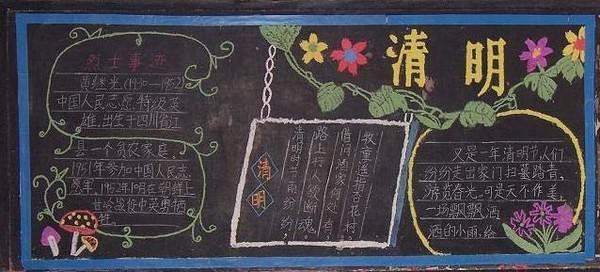 清明
烈士事迹
黄继光(1930-1952)
中国人民志愿特级英
雄,出生于四川省江
县一个贫农家庭,
1951年参加中国人民志
愿军,1952年10月在朝鲜上
甘岭战役中英勇牺
牲。
清明
清明时节雨纷纷
路上行人欲断魂
借问酒家何处有
牧童遥指杏花村
又是一年清明节,人们
纷纷走出家门扫墓踏青,
游览春光,可是天不作美,
一场飘飘洒
洒的小雨,给